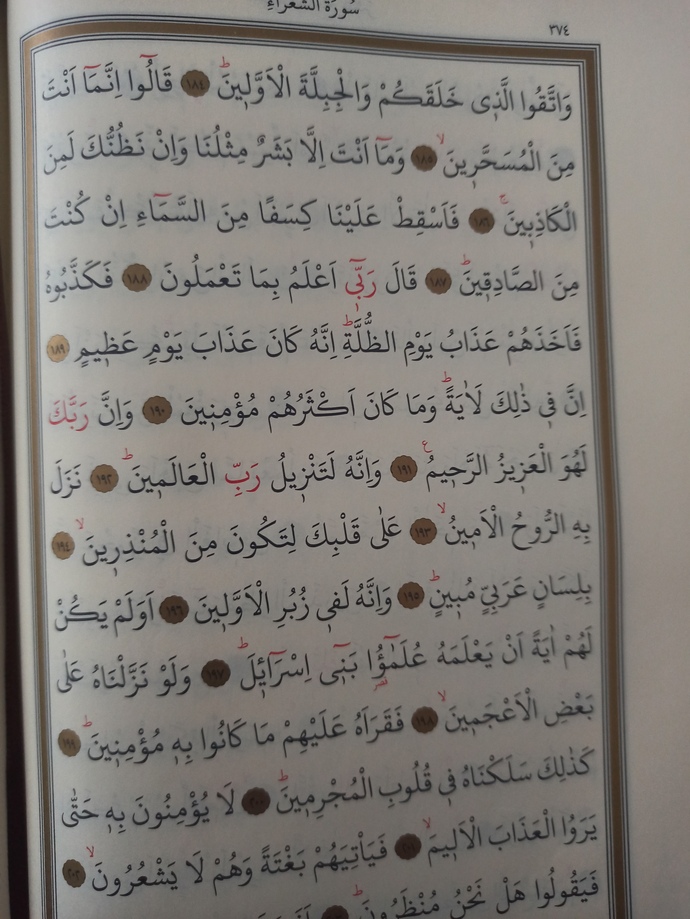 سُورَةُ الشُّعَرَاءِ
٣٧٤
وَاتَّقُوا الَّذٖى خَلَقَكُمْ وَالْجِبِلَّةَ الْاَوَّلٖينَؕ ﴿١٨٤﴾ قَالُٓوا اِنَّمَٓا اَنْتَ
مِنَ الْمُسَحَّرٖينَۙ ﴿١٨٥﴾ وَمَٓا اَنْتَ اِلَّا بَشَرٌ مِثْلُنَا وَاِنْ نَظُنُّكَ لَمِنَ
الْكَاذِبٖينَۚ ﴿١٨٦﴾ فَاَسْقِطْ عَلَيْنَا كِسَفًا مِنَ السَّمَٓاءِ اِنْ كُنْتَ
مِنَ الصَّادِقٖينَؕ ﴿١٨٧﴾ قَالَ رَبّٖٓى اَعْلَمُ بِمَا تَعْمَلُونَ ﴿١٨٨﴾ فَكَذَّبُوهُ
فَاَخَذَهُمْ عَذَابُ يَوْمِ الظُّلَّةِؕ اِنَّهُ كَانَ عَذَابَ يَوْمٍ عَظٖيمٍ ﴿١٨٩﴾
اِنَّ فٖى ذٰلِكَ لَاٰيَةًؕ وَمَا كَانَ اَكْثَرُهُمْ مُؤْمِنٖينَ ﴿١٩٠﴾ وَاِنَّ رَبَّكَ
لَهُوَ الْعَزٖيزُ الرَّحٖيمُ ع ﴿١٩١﴾ وَاِنَّهُ لَتَنْزٖيلُ رَبِّ الْعَالَمٖينَؕ ﴿١٩٢﴾ نَزَلَ
بِهِ الرُّوحُ الْاَمٖينُۙ ﴿١٩٣﴾ عَلٰى قَلْبِكَ لِتَكُونَ مِنَ الْمُنْذِرٖينَۙ ﴿١٩٤﴾
بِلِسَانٍ عَرَبِيٍّ مُبٖينٍؕ ﴿١٩٥﴾ وَاِنَّهُ لَفٖى زُبُرِ الْاَوَّلٖينَ ﴿١٩٦﴾ اَوَلَمْ يَكُنْ
لَهُمْ اٰيَةً اَنْ يَعْلَمَهُ عُلَمٰٓؤُا بَنٖٓى اِسْرَٓائٖلَؕ ﴿١٩٧﴾ وَلَوْ نَزَّلْنَاهُ عَلٰى
بَعْضِ الْاَعْجَمٖينَۙ ﴿١٩٨﴾ فَقَرَاَهُ عَلَيْهِمْ مَا كَانُوا بِهٖ مُؤْمِنٖينَؕ ﴿١٩٩﴾
كَذٰلِكَ سَلَكْنَاهُ فٖى قُلُوبِ الْمُجْرِمٖينَؕ ﴿٢٠٠﴾ لَا يُؤْمِنُونَ بِهٖ حَتّٰى
يَرَوُا الْعَذَابَ الْاَلٖيمَۙ ﴿٢٠١﴾ فَيَاْتِيَهُمْ بَغْتَةً وَهُمْ لَا يَشْعُرُونَۙ ﴿٢٠٢﴾
فَيَقُولُوا هَلْ نَحْنُ مُنْظَرُونَؕ